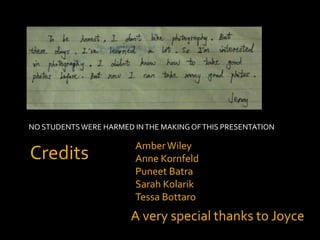 To be honest, I don't like photography. But
these days, I've learned a lot. So I'm interested
in photography. I didn't know how to take good
photos before. But now I can take many good photos.
Jenny
NO STUDENTS WERE HARMED IN THE MAKING OF THIS PRESENTATION
Credits
Amber Wiley
Anne Kornfeld
Puneet Batra
Sarah Kolarik
Tessa Bottaro
A very special thanks to Joyce